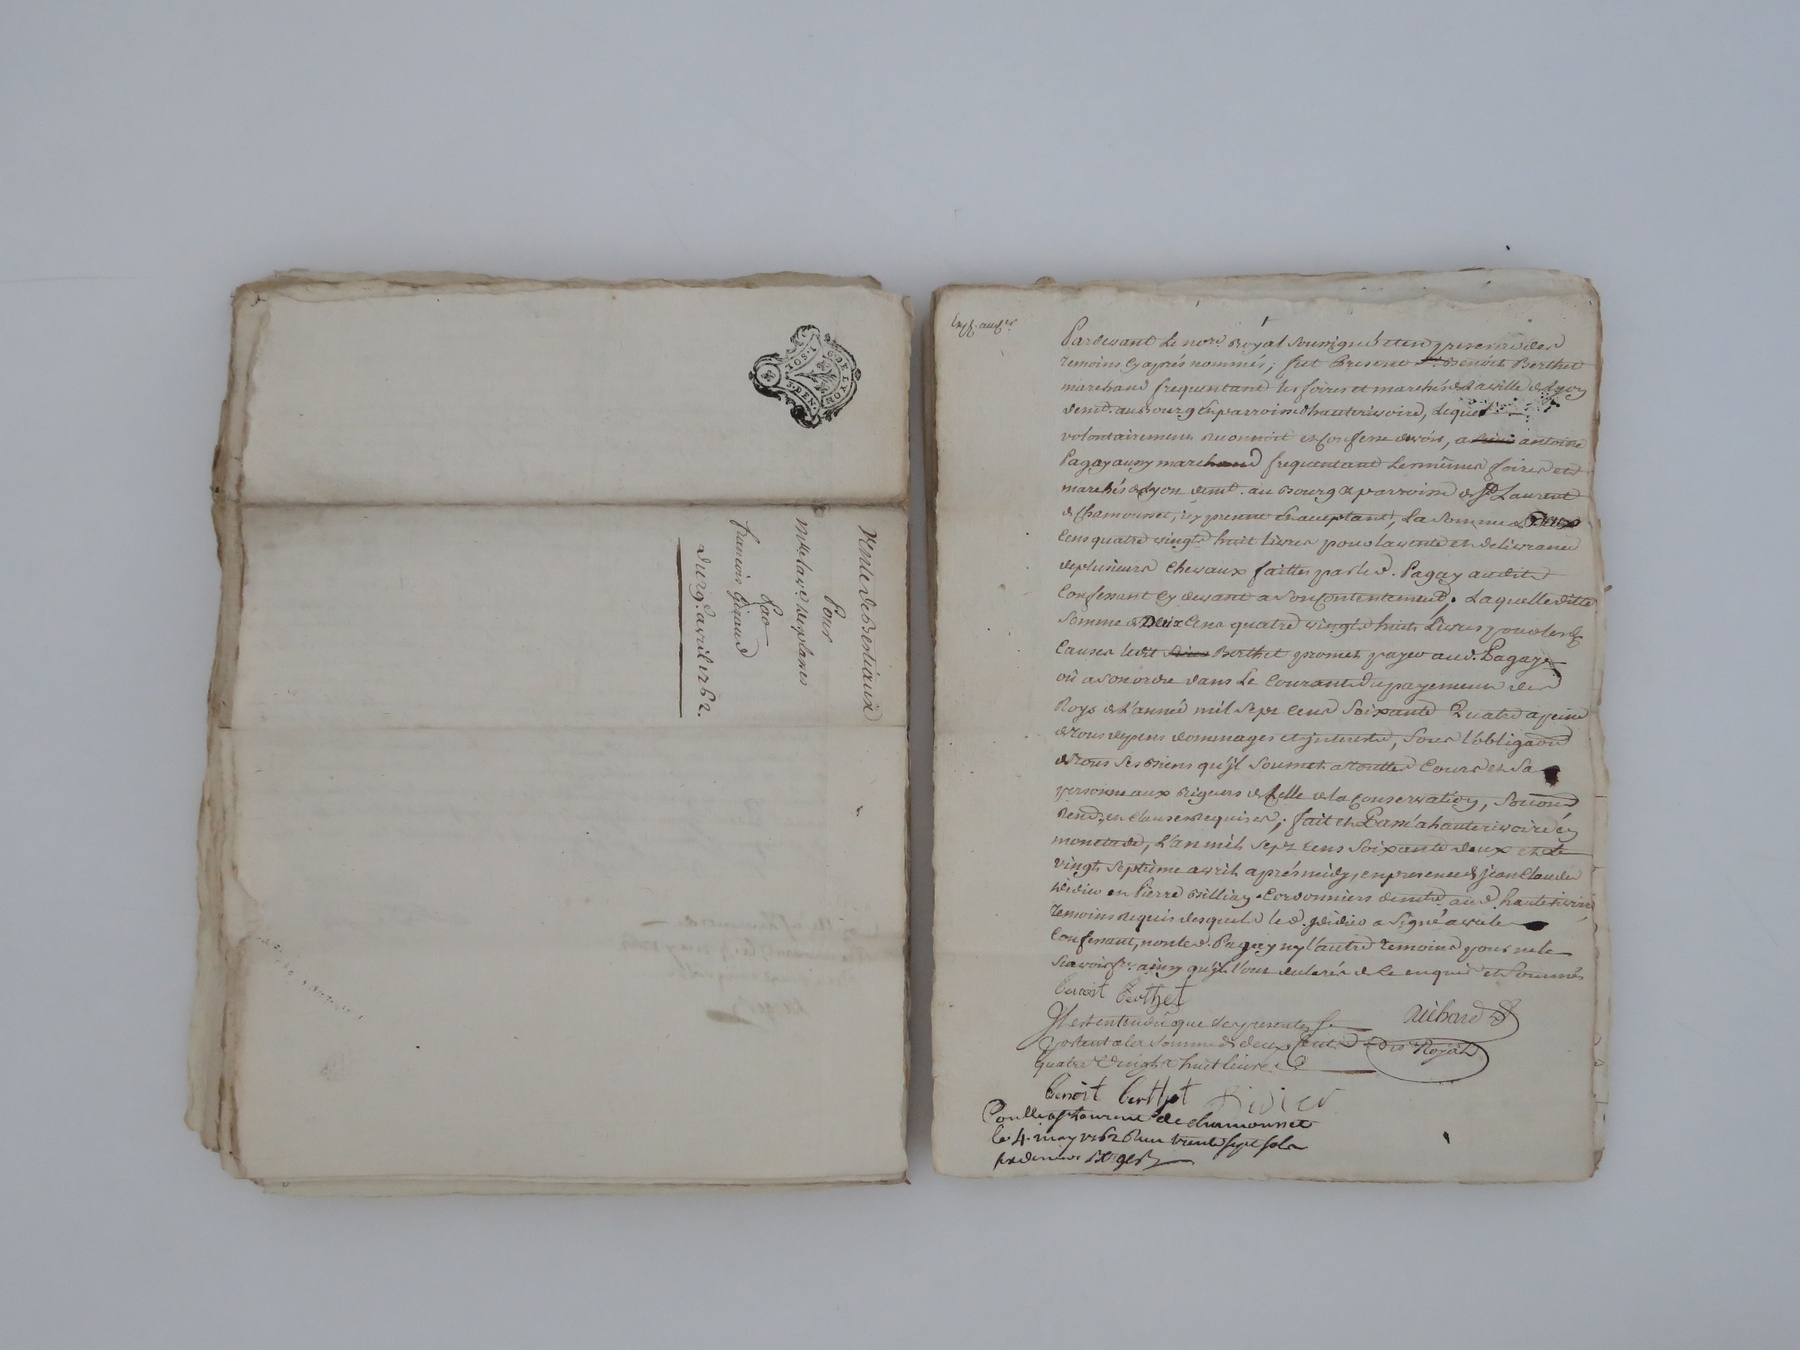 Vente de Bestiaux
Pour
Mtte claude desplanes
Par
francois Giraud
du 29e. avril 1762.
G. DE LYON
10S:1
3.DEN.
Exp. au Sr
Pardevant Le nore. Royal soussigné et en presence des
temoins cy aprés nommés; fut Present sr. Benoist Berthet
marchand frequentant les foires et marchés de la ville de Lyon
demt. au Bourg et parroisse d'hauterivoire, Lequel
volontairement reconnoit et confesse devoir, a antoine
Pagay aussy marchand frequentant les mêmes foires et
marchés de Lyon demt. au Bourg & parroisse de St. Laurent
de Chamousset, icy present et acceptant, La somme de Deux
Cens quatre vingts huit livres pour la vente et delivrance
de plusieurs chevaux faittes par led. Pagay audit
Confessant cy devant a son contentement. Laquelle ditte
somme de Deux Cens quatre vingts huit Livres pour les
Causes ledit Berthet promet payer aud. Pagay
où a son ordre dans le Courant du payement des
Roys de L'année mil sept cens soixante Quatre a peine
de tous depens dommages et interests, sous l'obligaon
de tous ses biens qu'il soumet a touttes Cours et sa
personne aux Rigueurs de Celle de la conservation,
Rend. en clauses Requises; fait et Passé a hauterivoire en
mon etude, L'an mil sept cens soixante deux et le
vingt septieme avril aprés midy, en presence de jean Claude
Didier et Pierre Billiay Cordonniers demts. aud. hauterivoire
temoins Requis desquels led. Didier a signé avec le
Confessant, non led. Pagay ny l'autre temoins pour ne le
scavoir fe. ainsy qu'ils l'ont declarés de ce enquis et sommés
Benoit Berthet
Richard
No Royal
Il est entendû que les presentes se
portent a la somme de deux Cents
quatre Vingts huit livres
Benoit Berthet Didier
Conllé a St Laurent de chamousset
le 4. may 1762 Reçu trente sept sols
six deniers